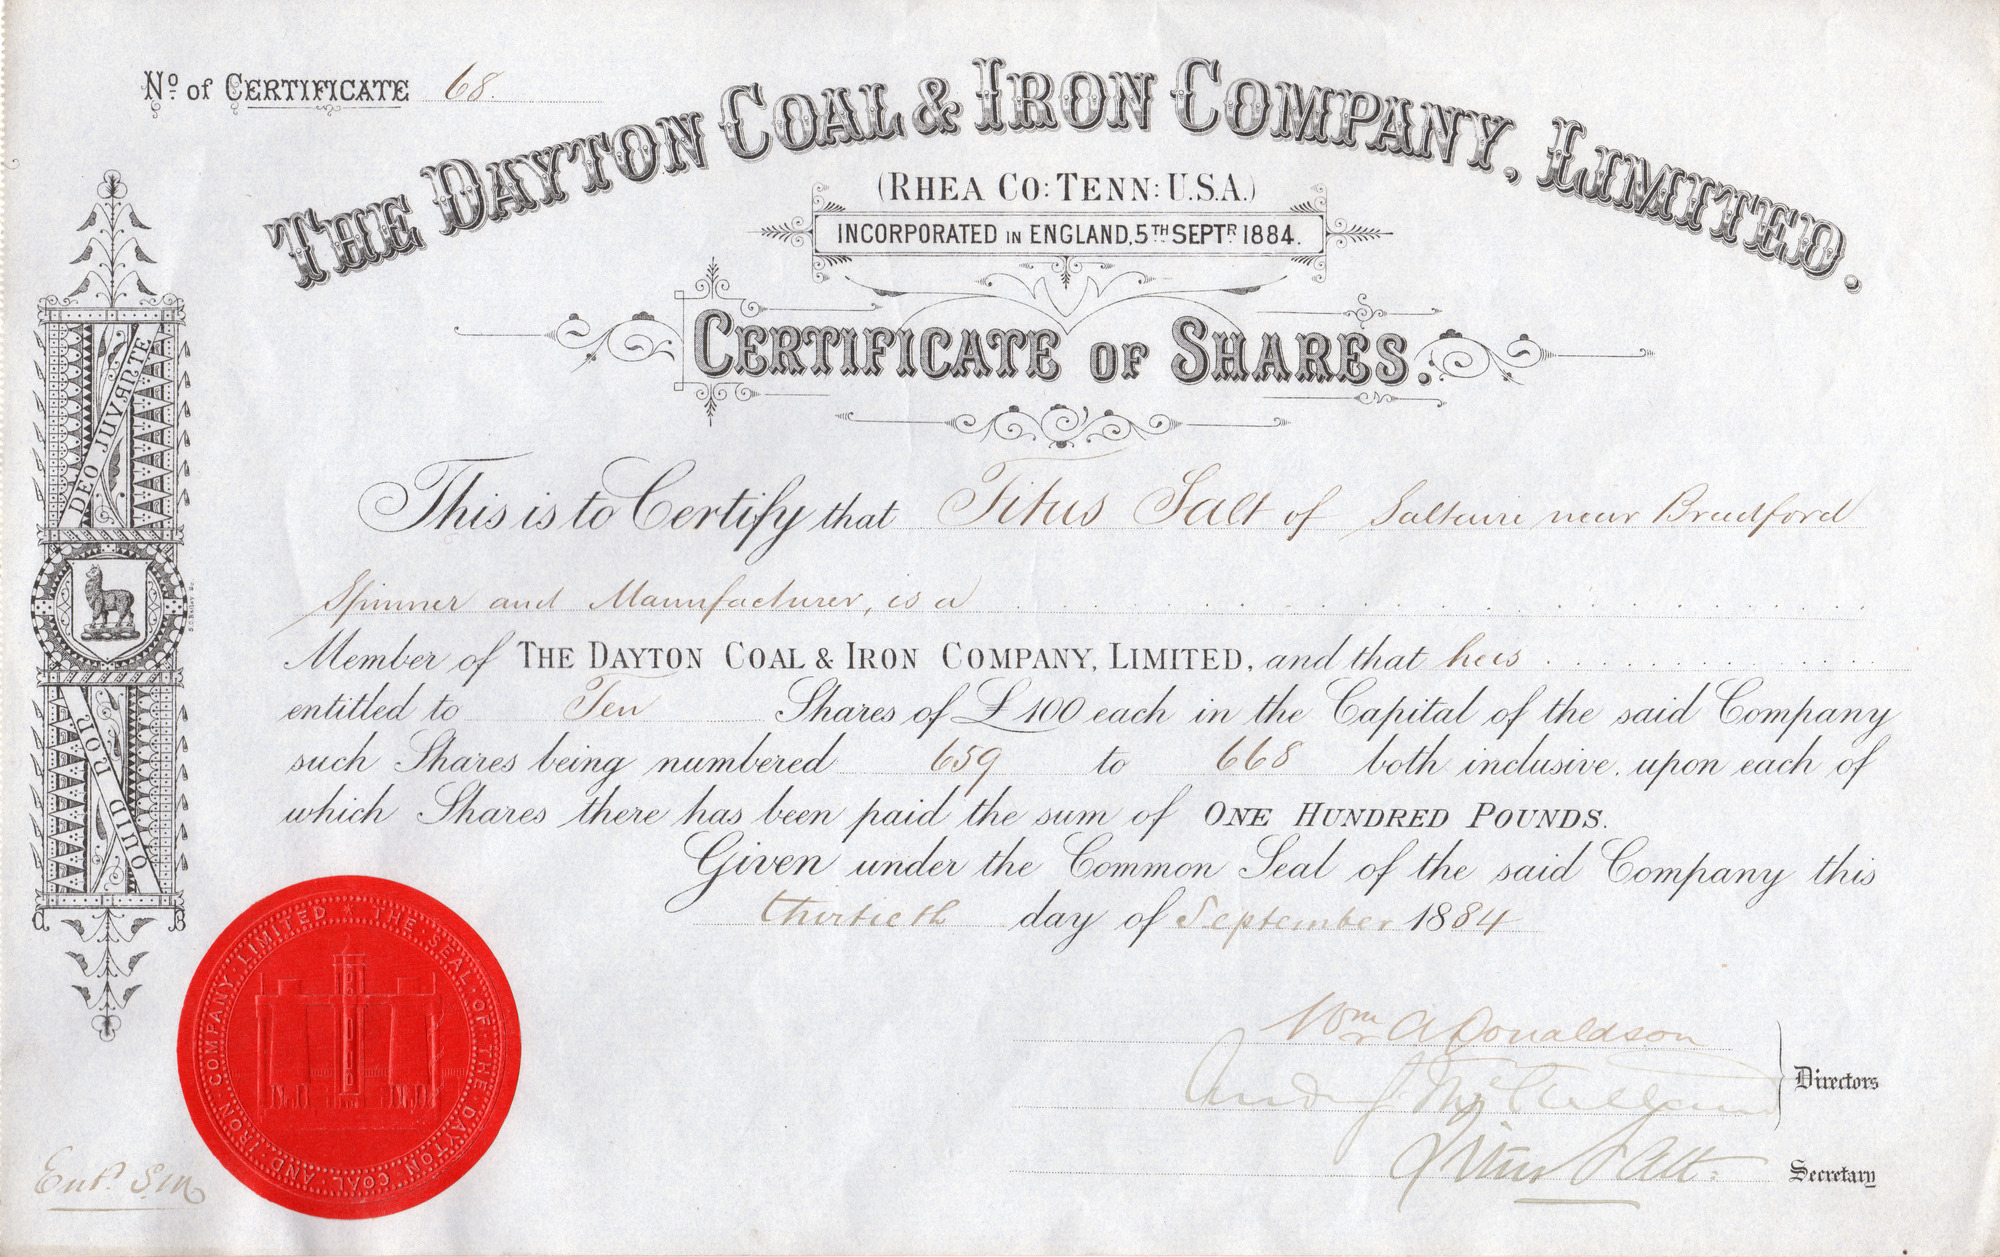 No. of CERTIFICATE 68.
THE DAYTON COAL & IRON COMPANY, LIMITED.
(RHEA CO: TENN: U.S.A.)
INCORPORATED IN ENGLAND, 5TH SEPTR 1884.
CERTIFICATE OF SHARES.
DEO JUVANTE
QUID NON
This is to Certify that Titus Salt of Saltaire near Bradford
Spinner and Manufacturer, is a
Member of THE DAYTON COAL & IRON COMPANY, LIMITED, and that he is
entitled to Ten Shares of £100 each in the Capital of the said Company
such Shares being numbered 659 to 668 both inclusive, upon each of
which Shares there has been paid the sum of ONE HUNDRED POUNDS.
Given under the Common Seal of the said Company this
thirtieth day of September 1884
THE SEAL OF THE DAYTON COAL AND IRON COMPANY LIMITED
Wm A Donaldson
Directors
Titus Salt
Secretary
Entd. S.M